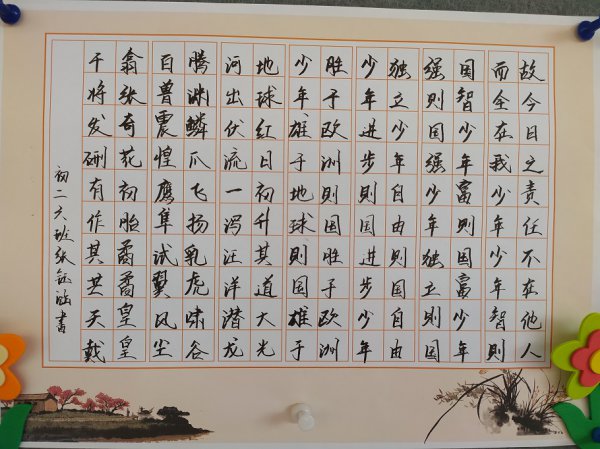 故今日之责任不在他人
而全在我少年少年智則
国智少年富則国富少年
强則国强少年独立則国
独立少年自由则国自由
少年进步則国进步少年
胜于欧洲則国胜于欧洲
少年雄于地球則国雄于
地球红日初升其道大光
河出伏流一泻汪洋潜龙
腾渊鳞爪飞扬乳虎啸谷
百兽震惶鹰隼试翼风尘
翕张奇花初胎矞矞皇皇
干将发硎有作其芒天戴
初二六班张钰涵书